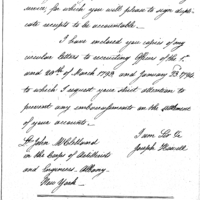 service, for which you will please to sign dupli-
cate receipts to be accountable.
I have enclosed you copies of my
circular letters to recruiting Officers of the
and 20th of March 1793 and January 23 1794
to which I request your strict attention to
prevent any embarrassments in the settlement
of your accounts.
I am Sir &c
Joseph Howell
Lt John McClelland
in the Corps of Artillerists
and Engineers. Albany.
New York